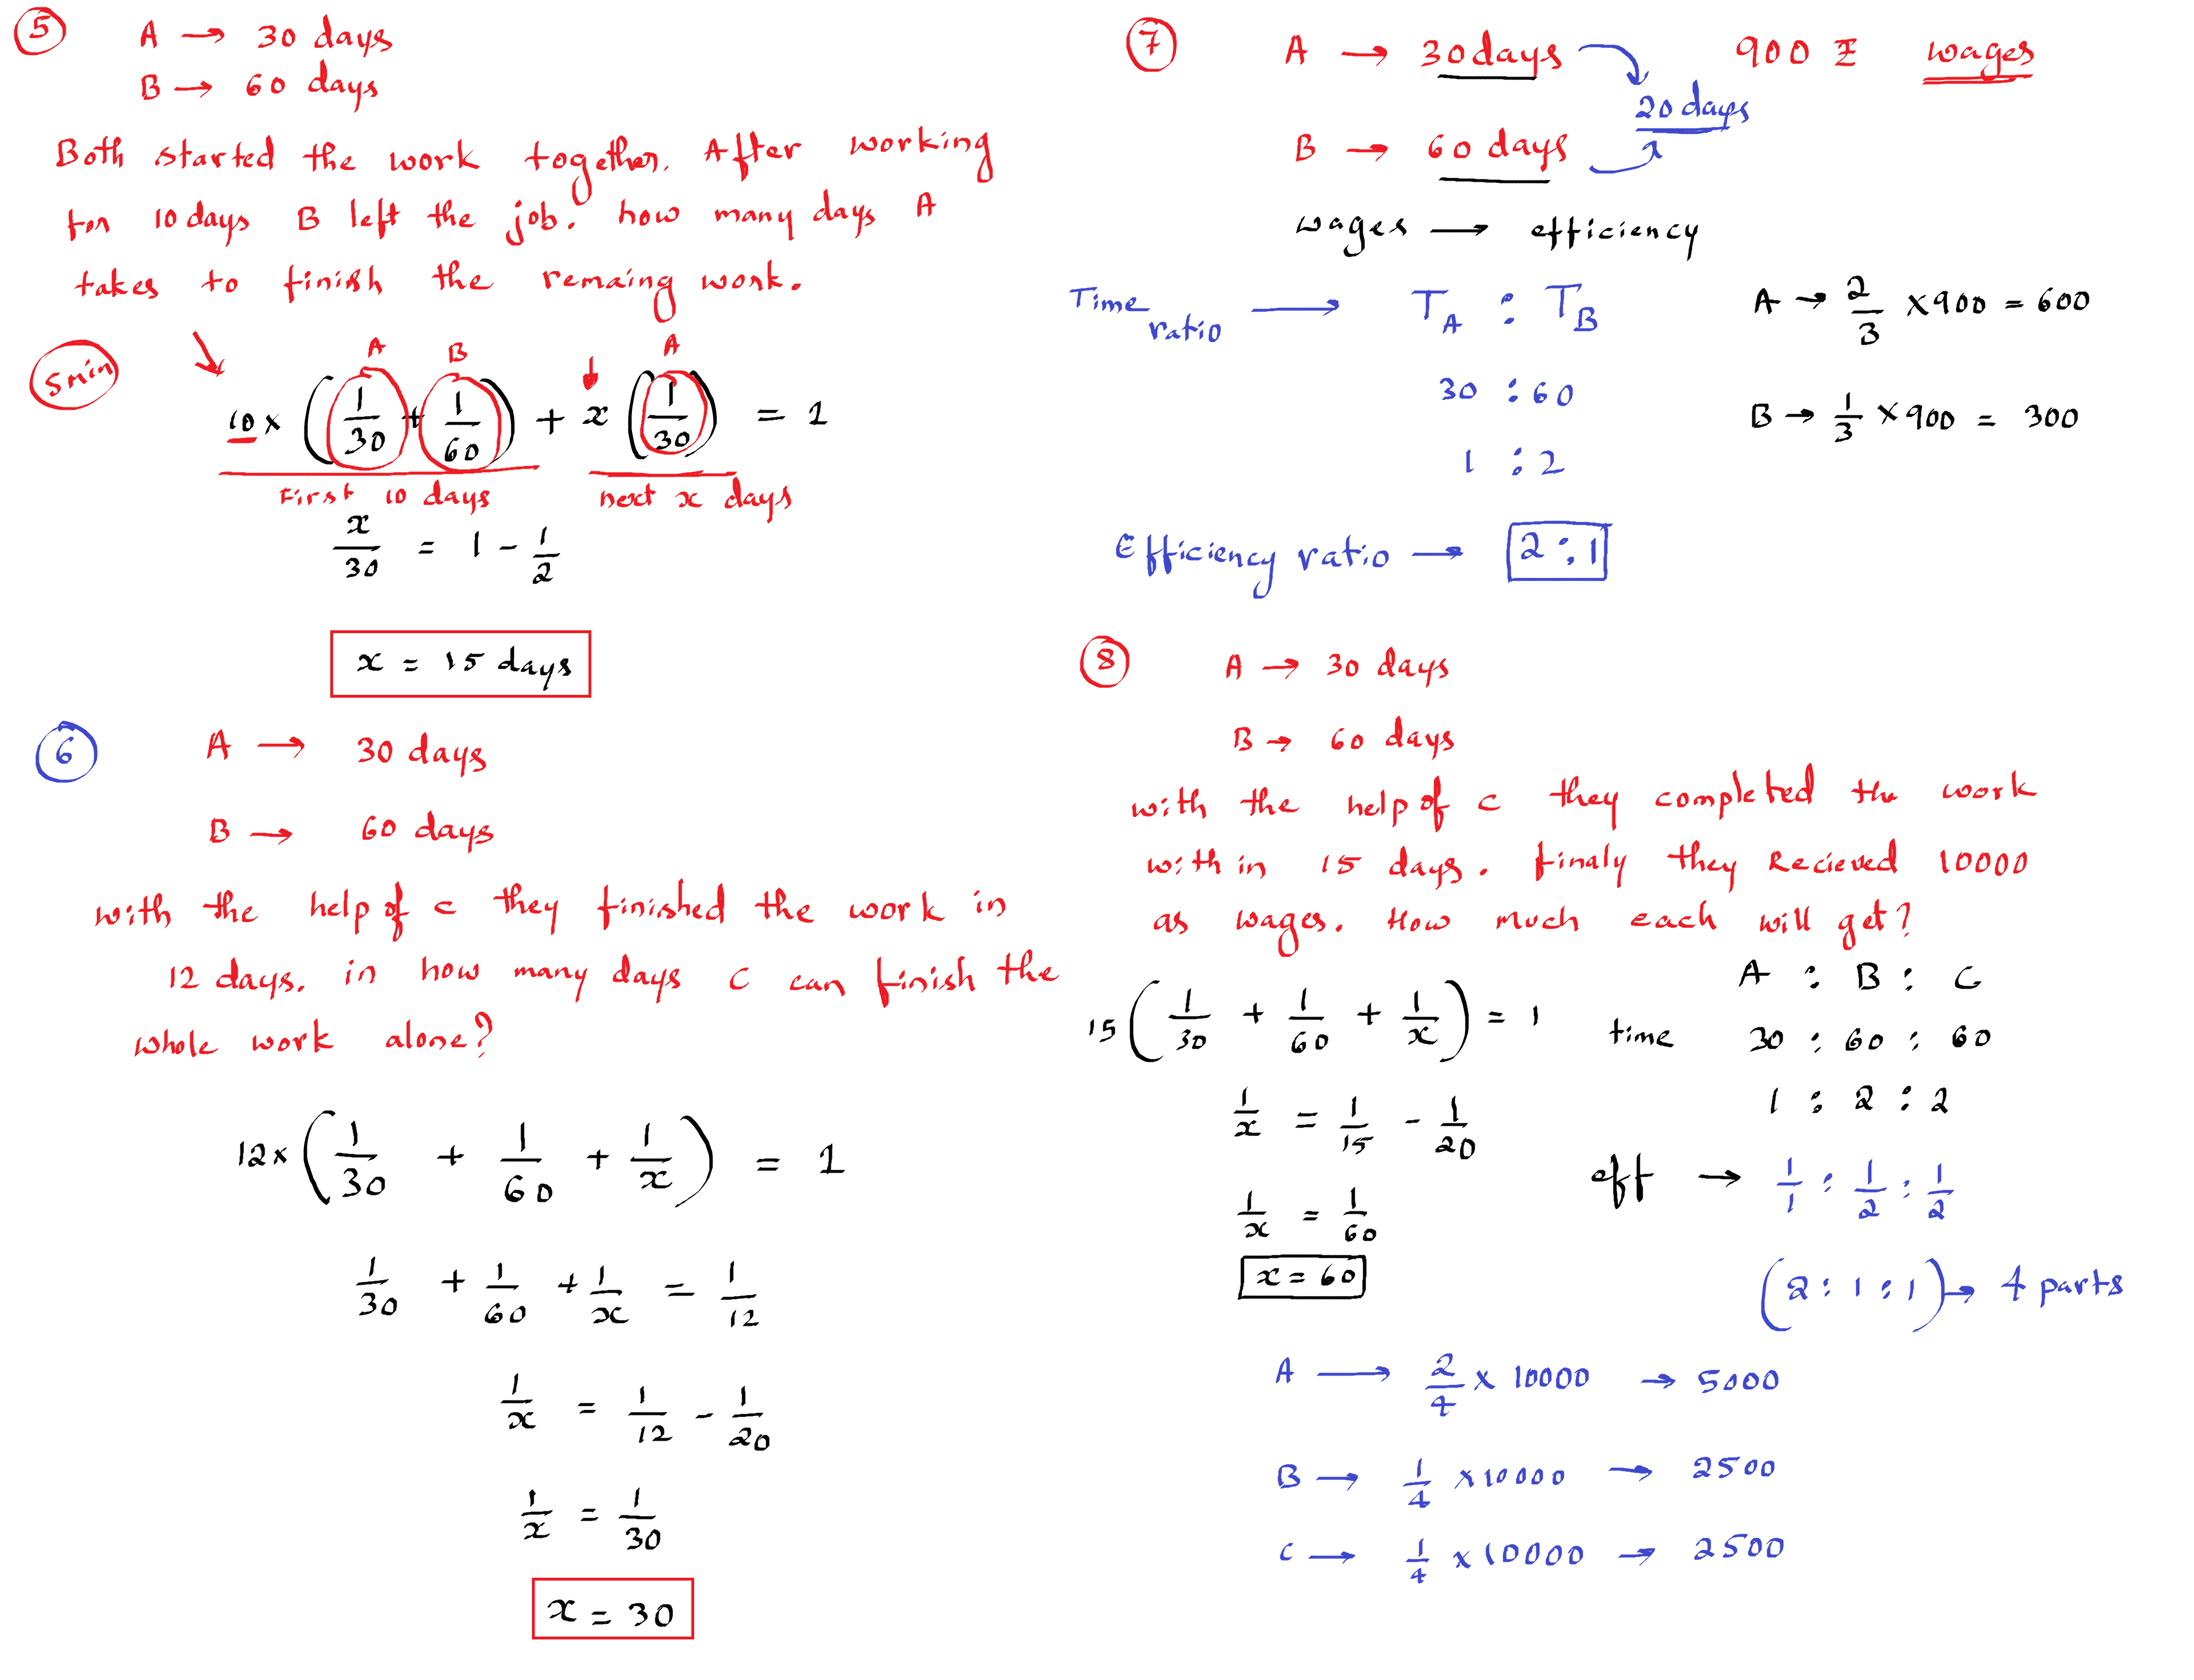 5
A → 30 days
B → 60 days
Both started the work together. After working
for 10 days B left the job. how many days A
takes to finish the remaing work.
5min
A B A
10 × (1/30 + 1/60) + x (1/30) = 1
First 10 days next x days
x/30 = 1 - 1/2
x = 15 days
6
A → 30 days
B → 60 days
with the help of c they finished the work in
12 days. in how many days c can finish the
whole work alone?
12 × (1/30 + 1/60 + 1/x) = 1
1/30 + 1/60 + 1/x = 1/12
1/x = 1/12 - 1/20
1/x = 1/30
x = 30
7
A → 30 days 900 wages
20 days
B → 60 days
wages → efficiency
Time ratio → T_A : T_B
30 : 60
1 : 2
Efficiency ratio → 2 : 1
A → 2/3 × 900 = 600
B → 1/3 × 900 = 300
8
A → 30 days
B → 60 days
with the help of c they completed the work
with in 15 days. finaly they Recieved 10000
as wages. How much each will get?
15 (1/30 + 1/60 + 1/x) = 1
1/x = 1/15 - 1/20
1/x = 1/60
x = 60
A : B : C
time 30 : 60 : 60
1 : 2 : 2
eff → 1/1 : 1/2 : 1/2
(2 : 1 : 1) → 4 parts
A → 2/4 × 10000 → 5000
B → 1/4 × 10000 → 2500
C → 1/4 × 10000 → 2500